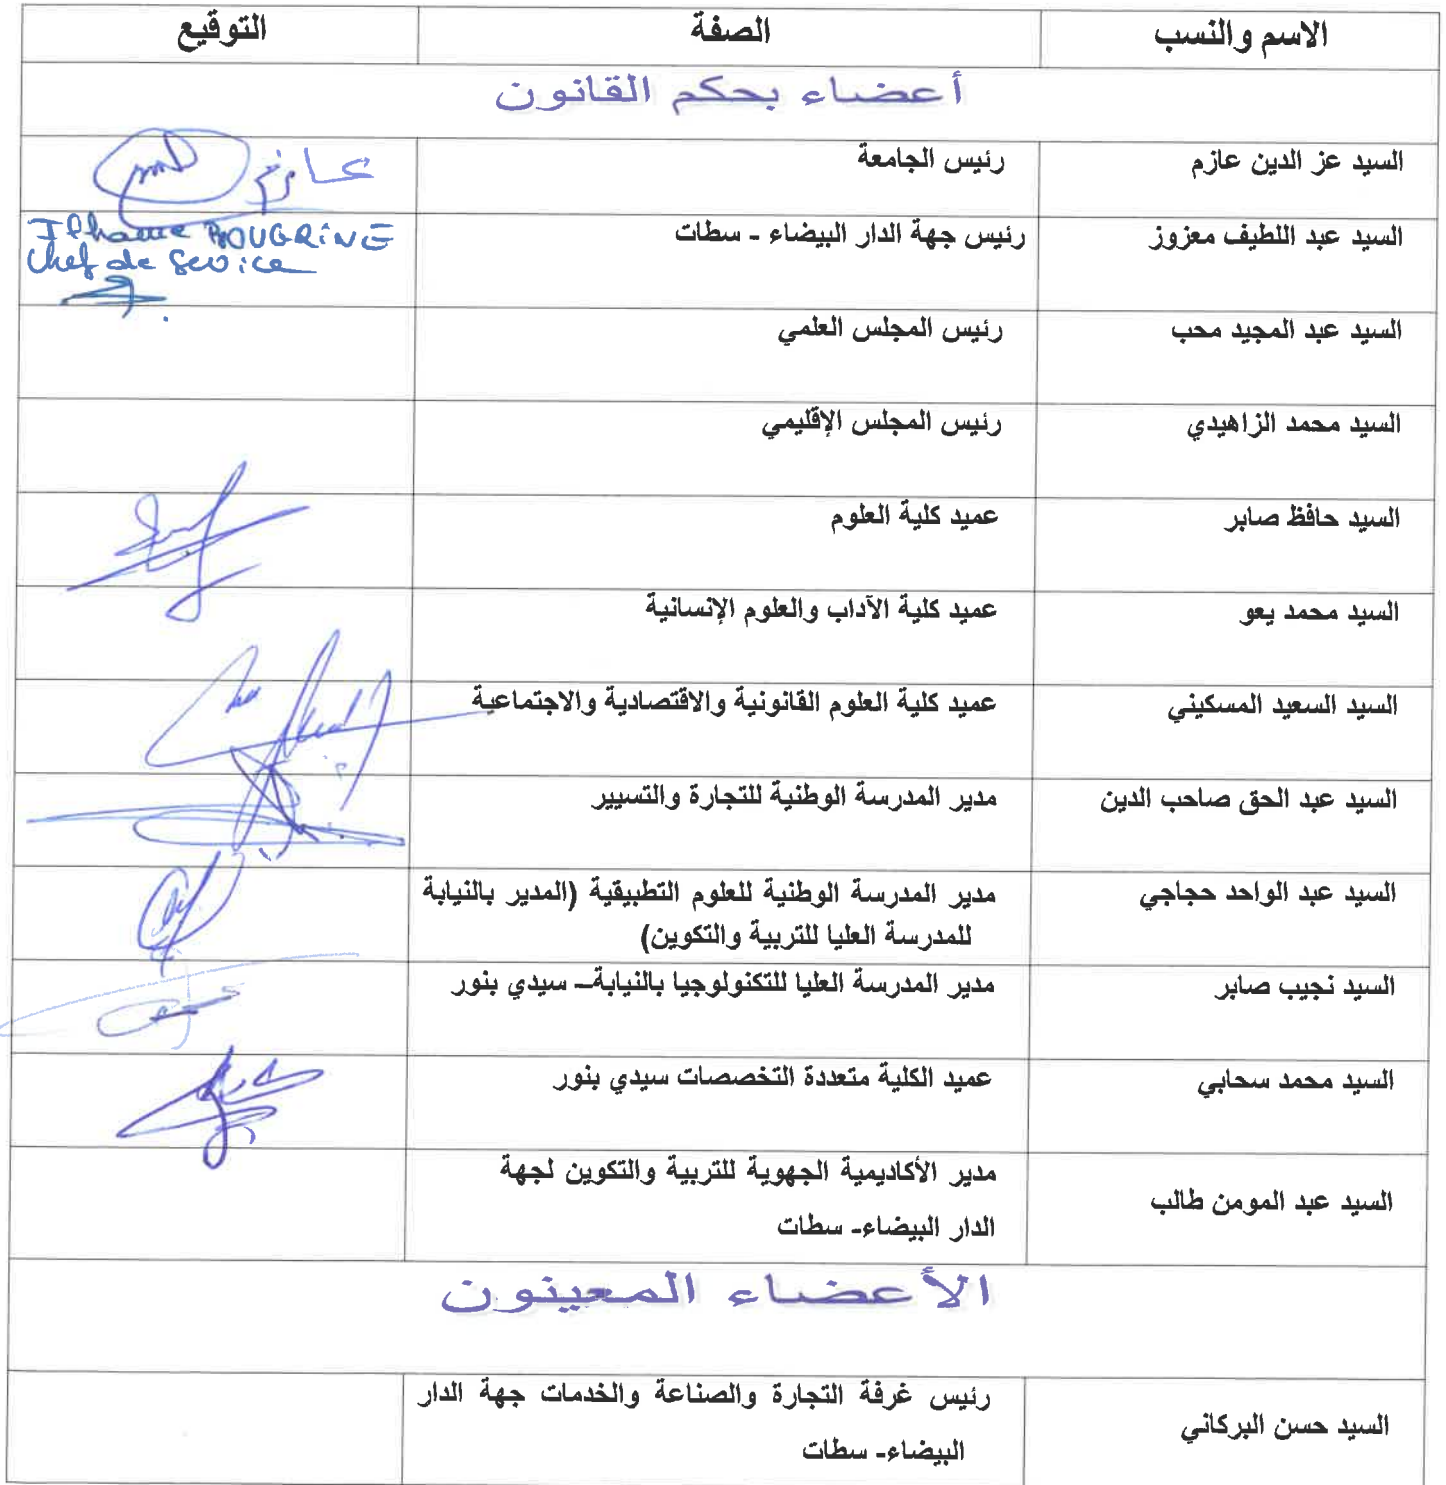 الاسم والنسب الصفة التوقيع
أعضاء بحكم القانون
السيد عز الدين عازم رئيس الجامعة عازم
السيد عبد اللطيف معزوز رئيس جهة الدار البيضاء - سطات Ilhame BOUGRINE
Chef de Service
السيد عبد المجيد محب رئيس المجلس العلمي
السيد محمد الزاهيدي رئيس المجلس الإقليمي
السيد حافظ صابر عميد كلية العلوم
السيد محمد يعو عميد كلية الآداب والعلوم الإنسانية
السيد السعيد المسكيني عميد كلية العلوم القانونية والاقتصادية والاجتماعية
السيد عبد الحق صاحب الدين مدير المدرسة الوطنية للتجارة والتسيير
السيد عبد الواحد حجاجي مدير المدرسة الوطنية للعلوم التطبيقية (المدير بالنيابة
للمدرسة العليا للتربية والتكوين)
السيد نجيب صابر مدير المدرسة العليا للتكنولوجيا بالنيابة– سيدي بنور
السيد محمد سحابي عميد الكلية متعددة التخصصات سيدي بنور
السيد عبد المومن طالب مدير الأكاديمية الجهوية للتربية والتكوين لجهة
الدار البيضاء- سطات
الأعضاء المعينون
السيد حسن البركاني رئيس غرفة التجارة والصناعة والخدمات جهة الدار
البيضاء- سطات